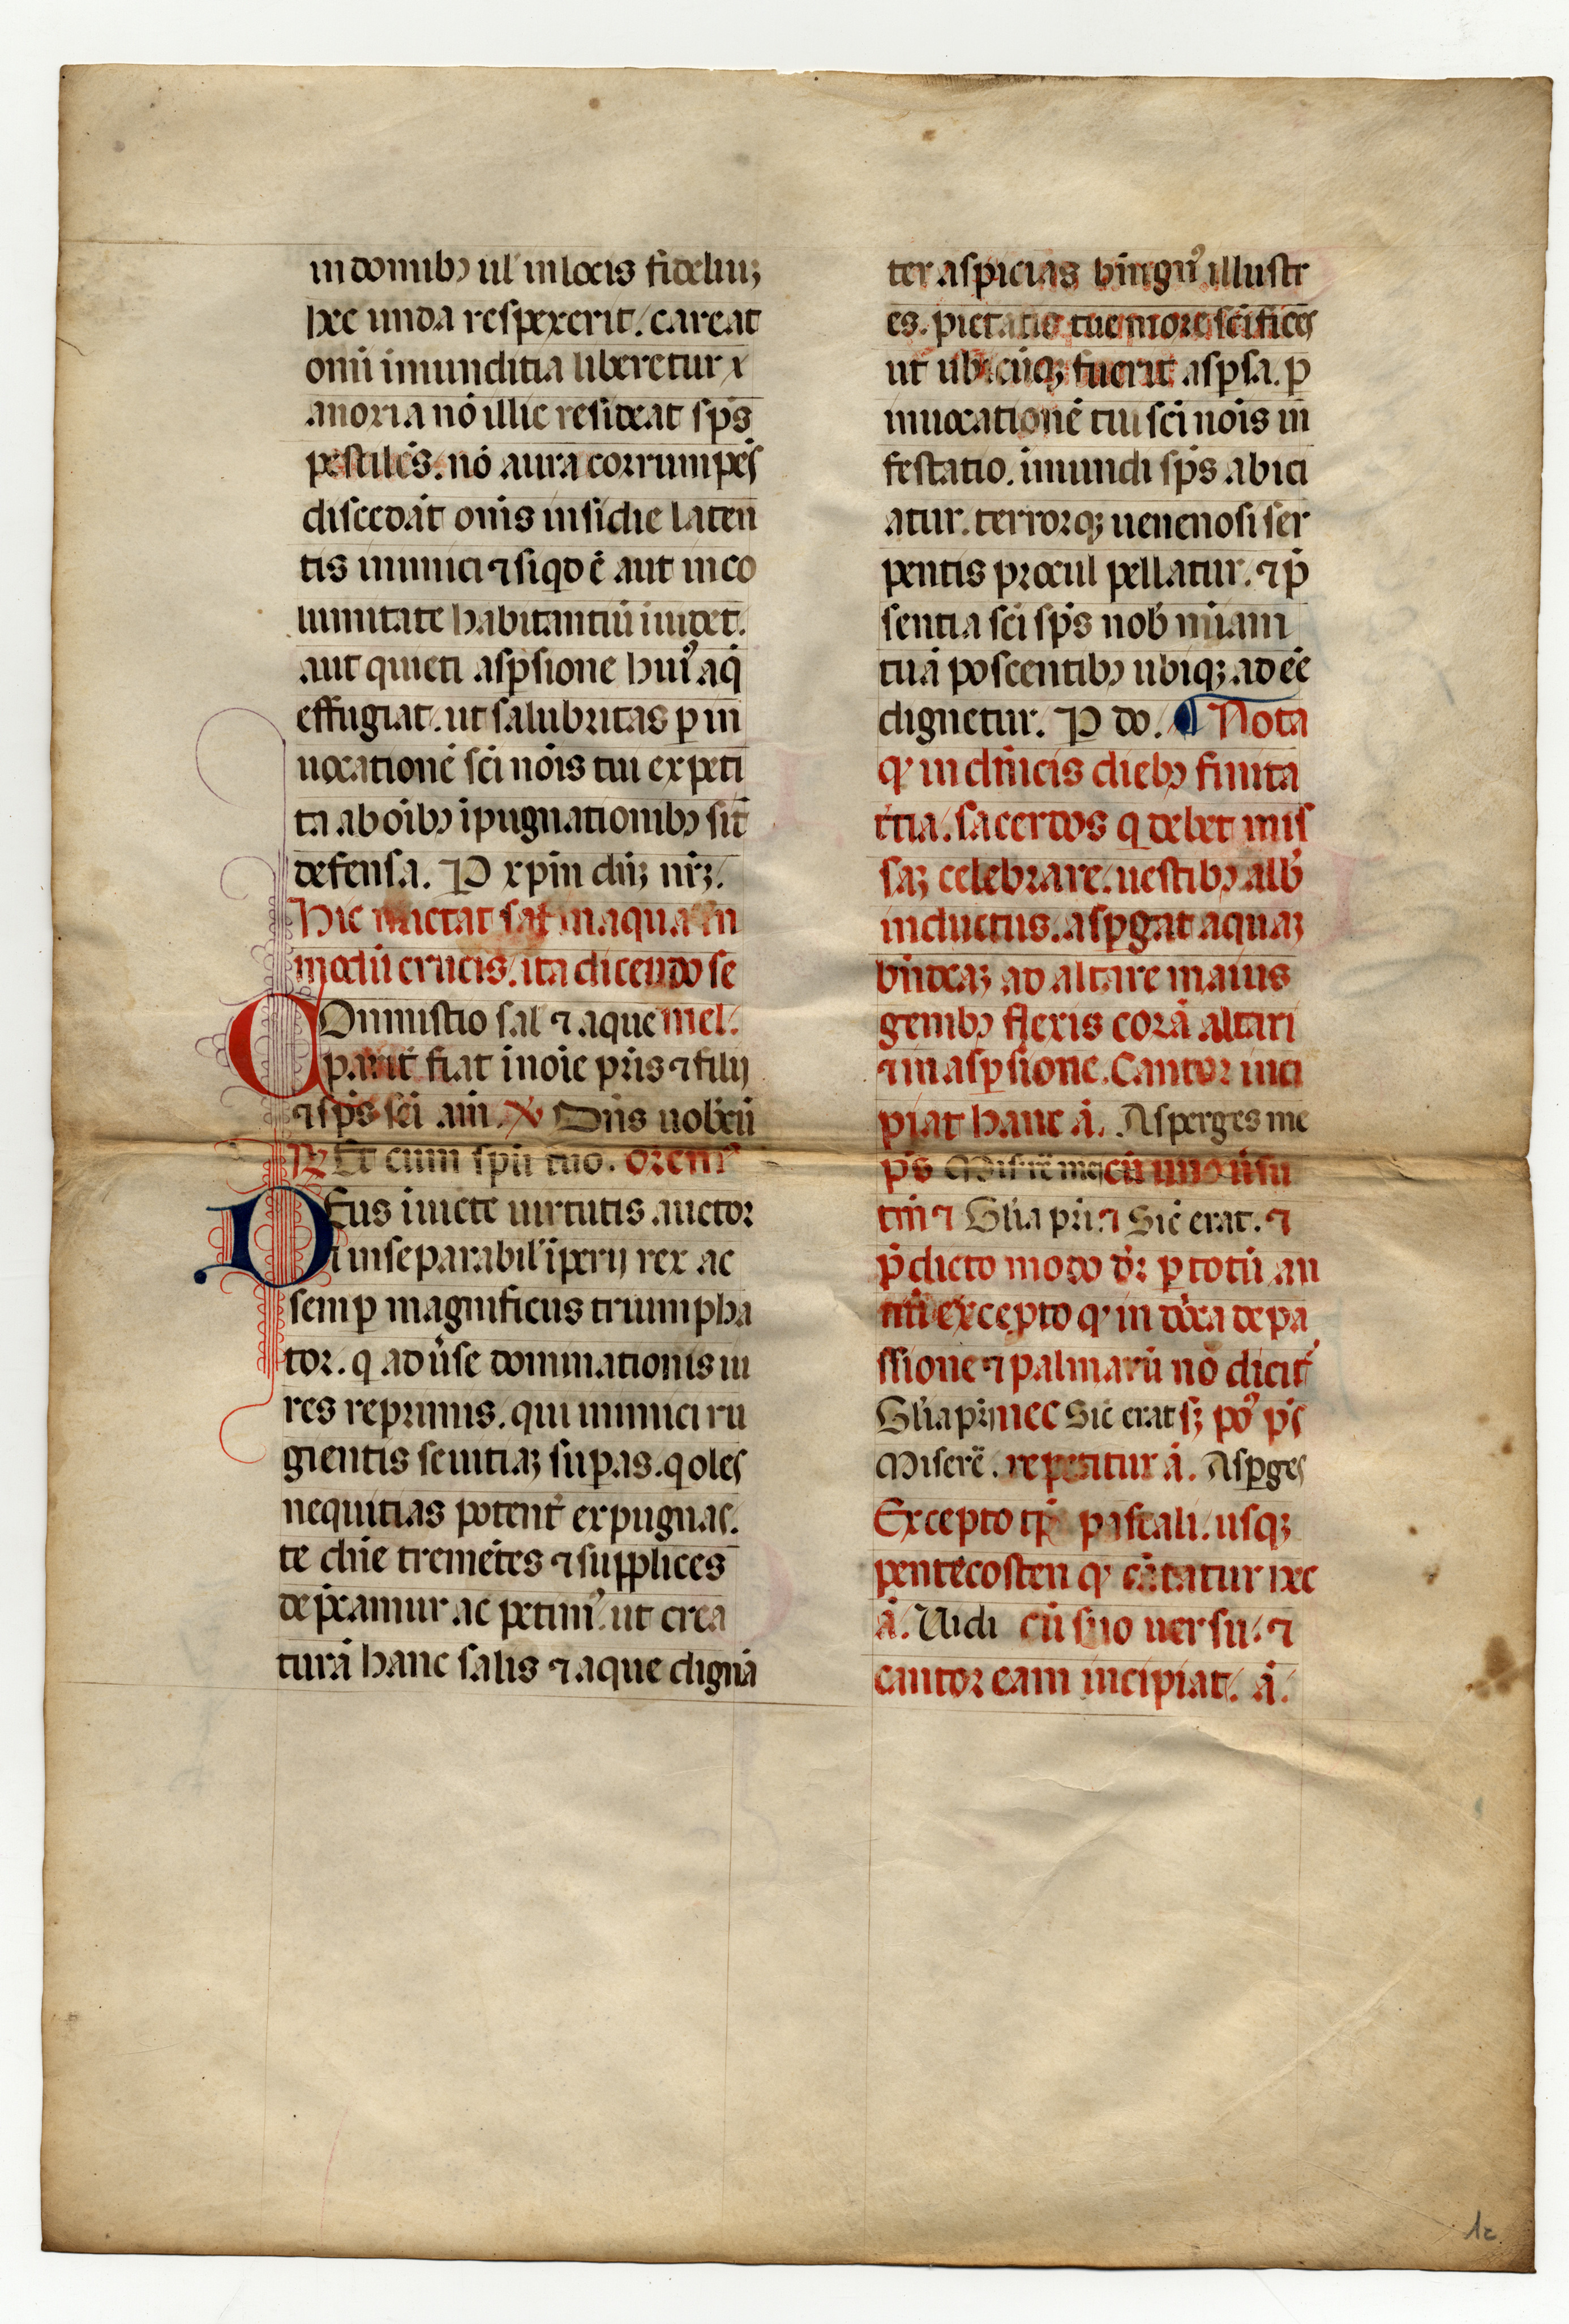 in domibꝯ ul̛ in locis fideliuꝫ
hec unda respexerit. careat
omī imundicia liberetur ⁊
a noxia nō illic resideat sp̄s
pestilēs. nō aura corrumpēs
discedāt om̄s insidie laten
tis inimici ⁊ siqd ē aut inco
lumitate habitantiū iuidet.
aut quieti asꝑsione huiꝰ aq̄
effugiat. ut salubritas ꝑ in
uocationē sc̄i nōis tui expeti
ta ab oībꝯ ipugnationibꝯ sit
defensa. P xp̄m dn̄ꝫ nr̄ꝫ.
Hic mictat sal̛ in aqua in
modū crucis. ita dicendo se
COmmistio sal̛ ⁊ aque mel.
parit̄ fiat i noīe pr̄is ⁊ filij
⁊ sp̄s sc̄i am̄. ℣ Dn̄s uobcū
℟ Et cum spū tuo. orem̄ꝰ
DEus iuicte uirtutis auctor
⁊ inseparabil̛ iperij rex ac
semꝑ magnificus triumpha
tor. q aduīse dominationis ui
res reprimis. qui inimici ru
gientis seuitiaꝫ suꝑas. q oles
nequitias potent̄ expugnas.
te dn̄e tremētes ⁊ supplices
dep̄camur ac petimꝰ. ut crea
turā hanc salis ⁊ aque dignā
ter aspicias bn̄ignꝰ illustr
es. pietatis tue more scīfices
ut ubicūqꝫ fuerit asꝑsa. ꝑ
inuocationē tui sc̄i nōis in
festatio. imundi sp̄s abici
atur. terrorqꝫ uenenosi ser
pentis procul pellatur. ⁊ p̄
sentia sc̄i sp̄s nob̄ mīam
tuā poscentibꝯ ubiqꝫ adeē
dignetur. P do. ¶ Nota
ꝙ in dn̄icis diebꝯ finita
t̄tia. sacerdos q debet mis
saꝫ celebrare. uestibꝯ alb̄
inductus. asꝑgat aquaꝫ
bn̄dcaꝫ ad altare maius
genibꝯ flexis corā altari
⁊ in asꝑsione. Cantor inci
piat hanc ā. Asperges me
p̄s Miser̄e mei cū uno ūsu
tm̄ ⁊ Gl̄ia pr̄i. ⁊ Sic̄ erat. ⁊
p̄dicto modo dr̄ ꝑ totū an
nū excepto ꝙ in dn̄ca de pa
ssione ⁊ palmarū nō dicit̄
Gl̄ia pr̄i nec Sic̄ erat sꝫ pꝰ p̄s
Miserē. repetitur ā. Asꝑges
Excepto tꝑe pascali. usqꝫ
pentecosten ꝙ cātatur hec
ā. Uidi cū suo uersu. ⁊
cantor eam incipiat. ā.